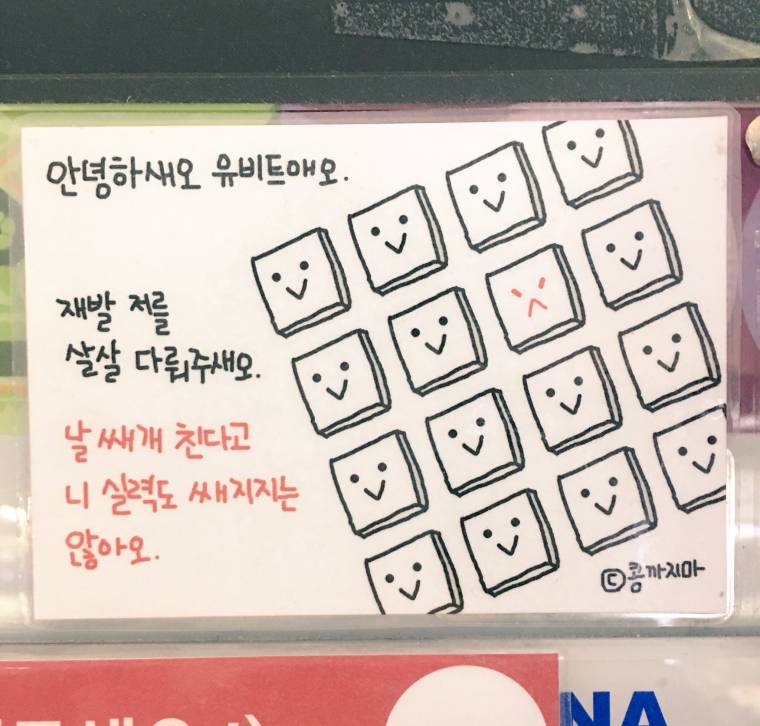 안녕하새오 유비트애오.
재발 저를
살살 다뤄주새오.
날 쌔개 친다고
니 실력도 쌔지지는
않아오.
ⓒ콩까지마
NA